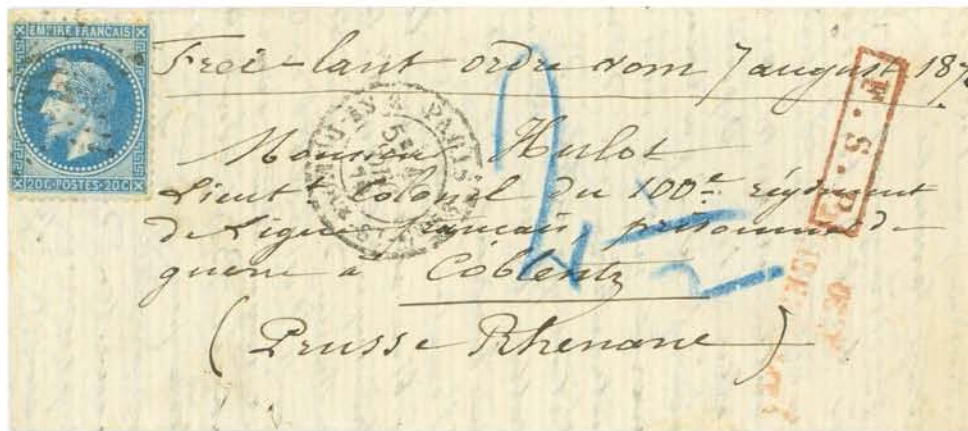 EMPIRE FRANÇAIS
20C·POSTES·20C
Frei-laut ordre vom 7 august 187
Monsieur Hulot
Lieutt Colonel du 100e régiment
de Ligne français, prisonnier de
guerre à Coblentz
(Prusse Rhénane)
PARIS
F.S.P.
2